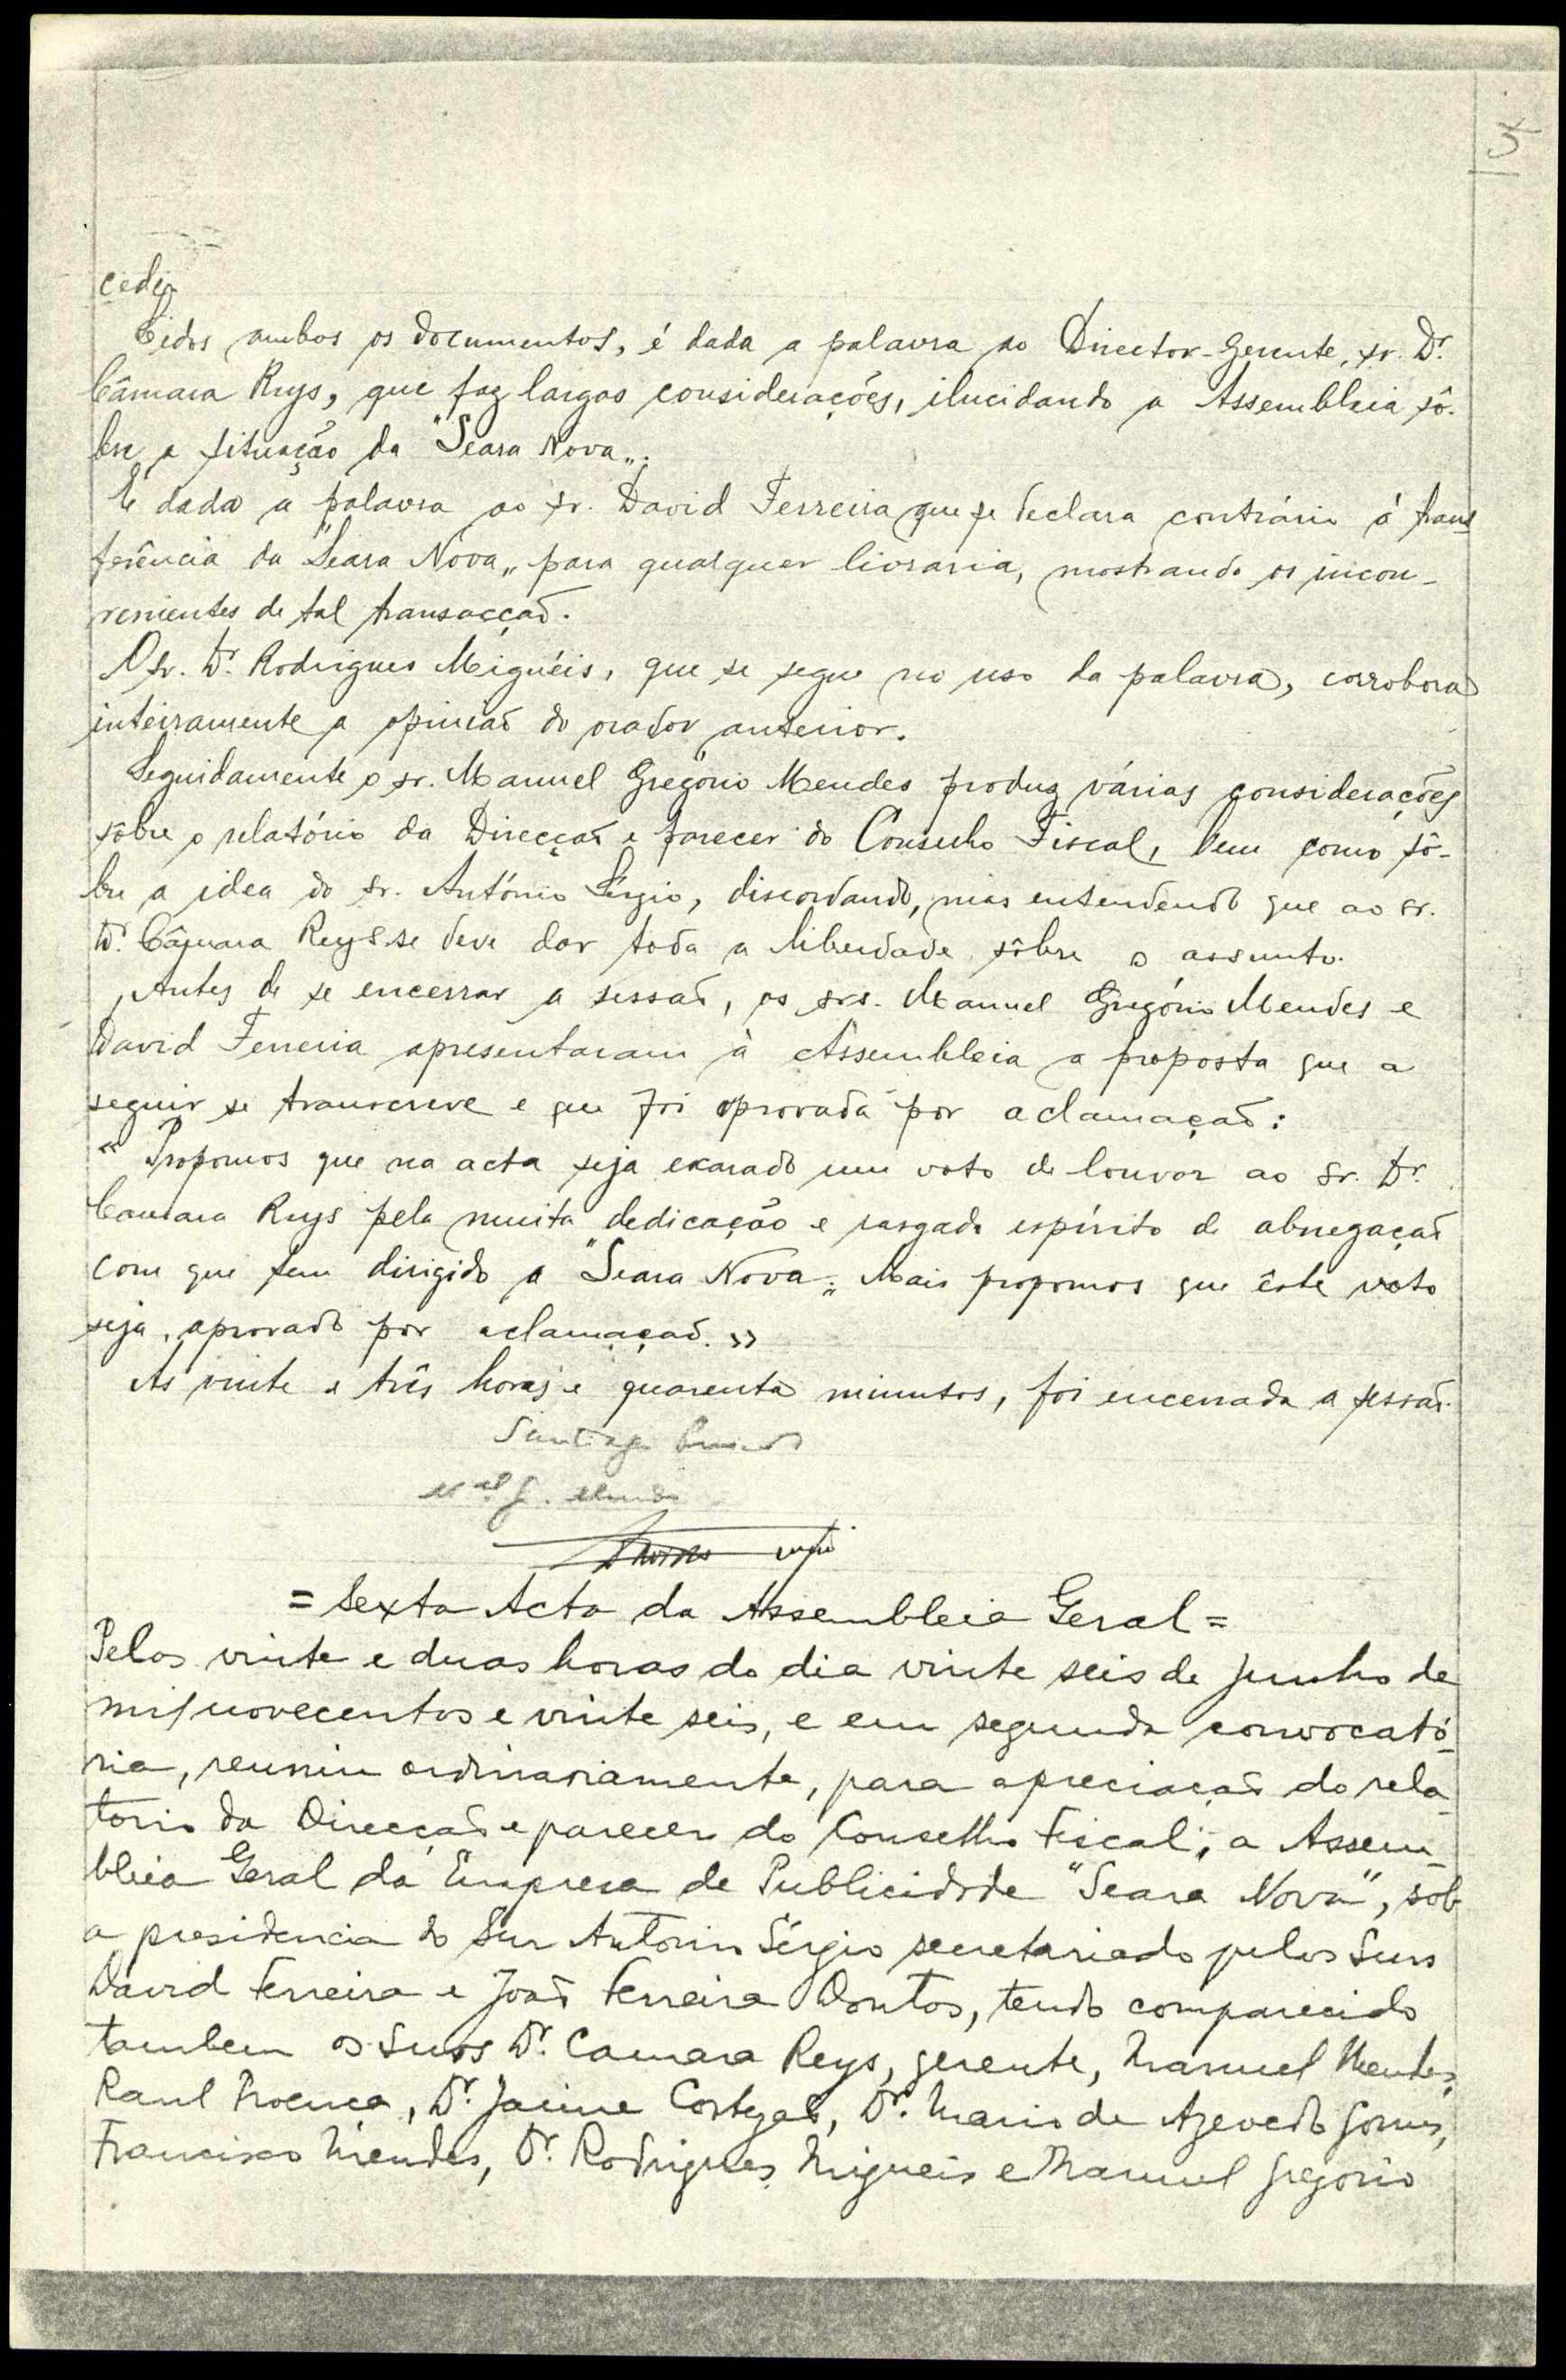 5
cedi-
Lidos ambos os documentos, é dada a palavra ao Director-Gerente, sr. Dr.
Câmara Reys, que faz largas considerações, ilucidando a Assembleia sô-
bre a situação da "Seara Nova„.
É dada a palavra ao sr. David Ferreira que se declara contrário á trans-
ferência da "Seara Nova„ para qualquer livraria, mostrando os incon-
venientes de tal transacção.
O sr. Dr. Rodrigues Miguéis, que se segue no uso da palavra, corrobora
inteiramente a opinião do orador anterior.
Seguidamente o sr. Manuel Gregório Mendes produz várias considerações
sôbre o relatório da Direcção e parecer do Conselho Fiscal, bem como sô-
bre a idea do sr. António Sérgio, discordando, mas entendendo que ao sr.
Dr. Câmara Reys se deve dar toda a liberdade sôbre o assunto.
Antes de se encerrar a sessão, os srs. Manuel Gregório Mendes e
David Ferreira apresentaram à Assembleia a proposta que a
seguir se transcreve e que foi aprovada por aclamação:
"Propomos que na acta seja exarado um voto de louvor ao sr. Dr.
Camara Reys pela muita dedicação e rasgado espírito de abnegação
com que tem dirigido a "Seara Nova„. Mais propomos que êste voto
seja aprovado por aclamação.»
Ás vinte e três horas e quarenta minutos, foi encerrada a sessão.
= Sexta Acta da Assembleia Geral =
Pelas vinte e duas horas do dia vinte seis de Junho de
mil novecentos e vinte seis, e em segunda convocató-
ria, reuniu ordinariamente, para apreciação do rela-
torio da Direcção e parecer do Conselho Fiscal, a Assem-
bleia Geral da Empresa de Publicidade "Seara Nova", sob
a presidencia do Snr Antonio Sérgio secretariado pelos Snrs
David Ferreira e João Ferreira Dontos, tendo comparecido
tambem os Snrs Dr. Camara Reys, gerente, Manuel Mendes,
Raul Proença, Dr. Jaime Cortezão, Dr. Mario de Azevedo Gomes,
Francisco Mendes, Dr. Rodrigues Migueis e Manuel Gregorio